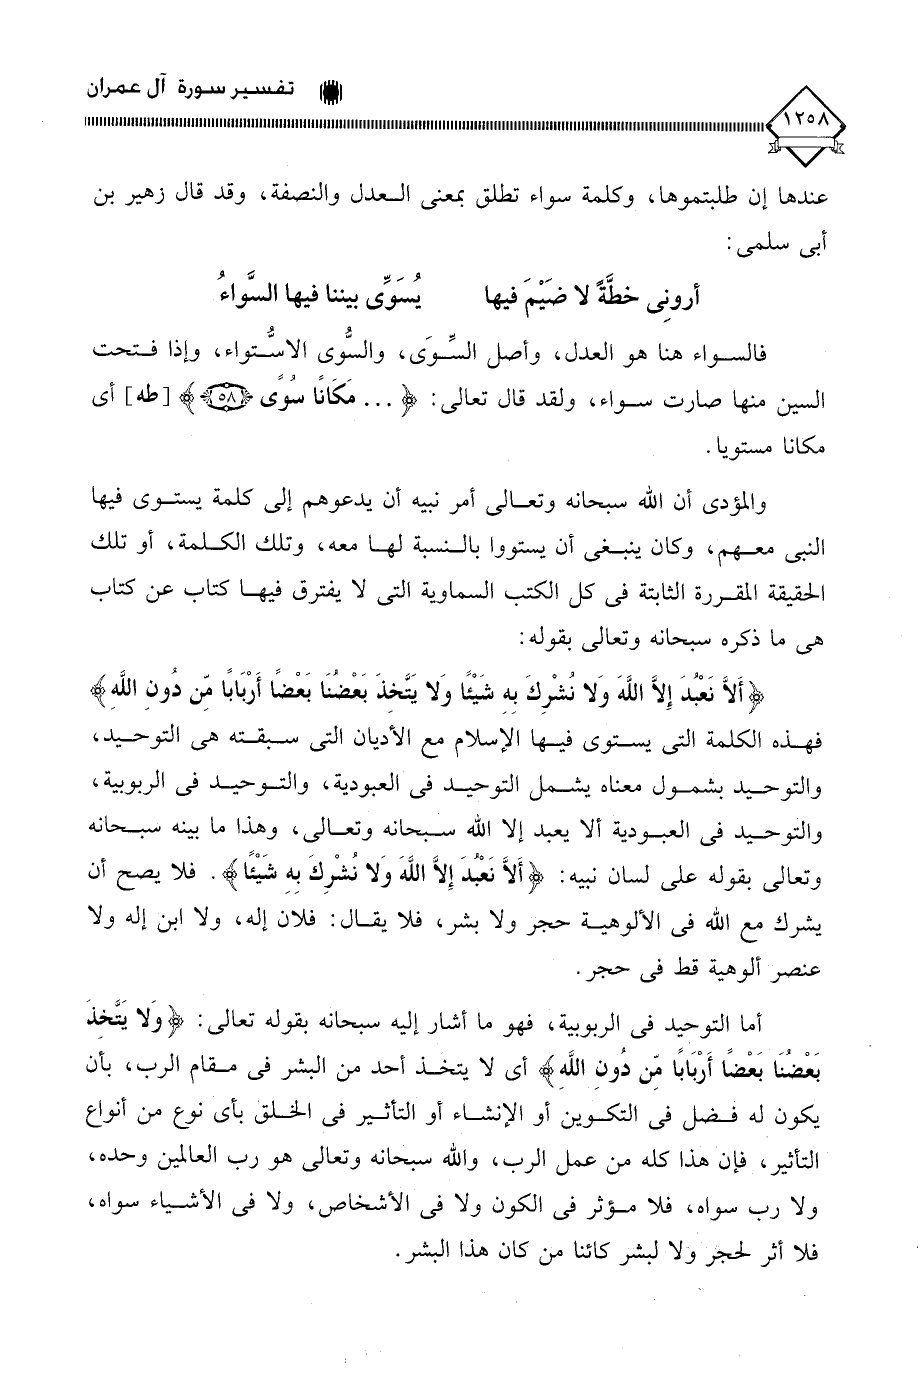 تفسير سورة آل عمران
١٢٥٨
عندها إن طلبتموها، وكلمة سواء تطلق بمعنى العدل والنصفة، وقد قال زهير بن
أبى سلمى:
أرونى خطَّةً لا ضَيْمَ فيها يُسَوِّى بيننا فيها السَّواءُ
فالسواء هنا هو العدل، وأصل السِّوَى، والسُّوى الاستُواء، وإذا فتحت
السين منها صارت سواء، ولقد قال تعالى: ﴿ ... مَكَانًا سُوًى ﴿٥٨﴾﴾ [طه] أى
مكانا مستويا.
والمؤدى أن الله سبحانه وتعالى أمر نبيه أن يدعوهم إلى كلمة يستوى فيها
النبى معهم، وكان ينبغى أن يستووا بالنسبة لها معه، وتلك الكلمة، أو تلك
الحقيقة المقررة الثابتة فى كل الكتب السماوية التى لا يفترق فيها كتاب عن كتاب
هى ما ذكره سبحانه وتعالى بقوله:
﴿أَلاَّ نَعْبُدَ إِلاَّ اللَّهَ وَلا نُشْرِكَ بِهِ شَيْئًا وَلا يَتَّخِذَ بَعْضُنَا بَعْضًا أَرْبَابًا مِّن دُونِ اللَّهِ﴾
فهذه الكلمة التى يستوى فيها الإسلام مع الأديان التى سبقته هى التوحيد،
والتوحيد بشمول معناه يشمل التوحيد فى العبودية، والتوحيد فى الربوبية،
والتوحيد فى العبودية ألا يعبد إلا الله سبحانه وتعالى، وهذا ما بينه سبحانه
وتعالى بقوله على لسان نبيه: ﴿أَلاَّ نَعْبُدَ إِلاَّ اللَّهَ وَلا نُشْرِكَ بِهِ شَيْئًا﴾. فلا يصح أن
يشرك مع الله فى الألوهية حجر ولا بشر، فلا يقال: فلان إله، ولا ابن إله ولا
عنصر ألوهية قط فى حجر.
أما التوحيد فى الربوبية، فهو ما أشار إليه سبحانه بقوله تعالى: ﴿وَلا يَتَّخِذَ
بَعْضُنَا بَعْضًا أَرْبَابًا مِّن دُونِ اللَّهِ﴾ أى لا يتخذ أحد من البشر فى مقام الرب، بأن
يكون له فضل فى التكوين أو الإنشاء أو التأثير فى الخلق بأى نوع من أنواع
التأثير، فإن هذا كله من عمل الرب، والله سبحانه وتعالى هو رب العالمين وحده،
ولا رب سواه، فلا مؤثر فى الكون ولا فى الأشخاص، ولا فى الأشياء سواه،
فلا أثر لحجر ولا لبشر كائنا من كان هذا البشر.